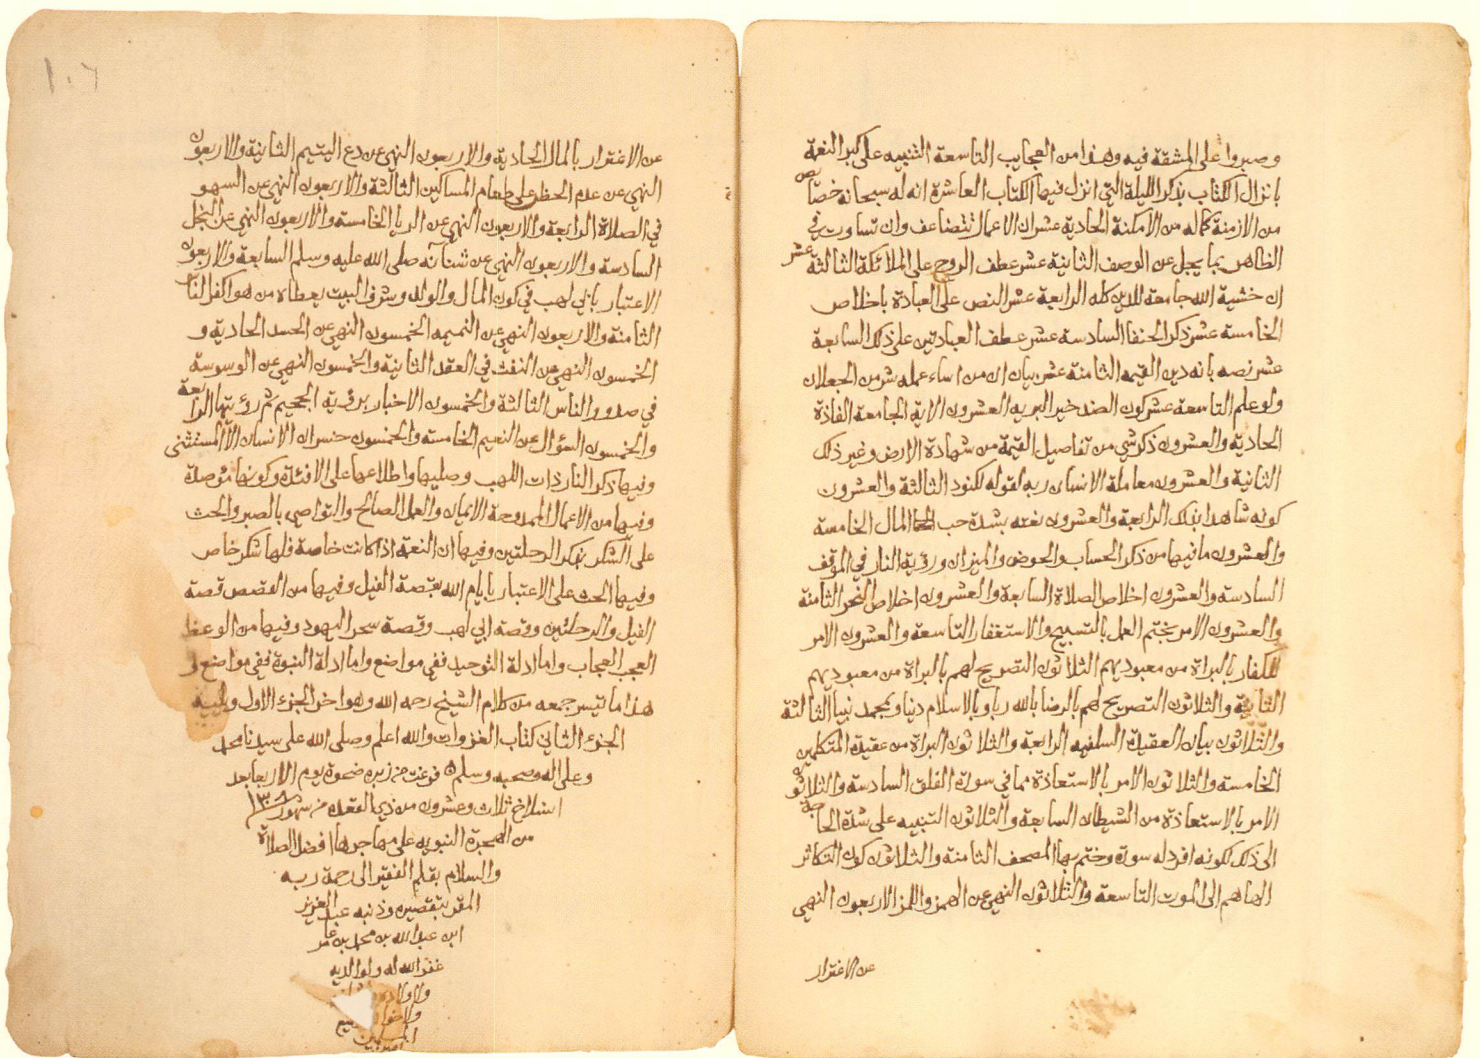 وصبروا على المشقة فيه وهذا من العجايب التاسعة التنبيه على كبر النعمة
بانزال الكتاب بذكر الليلة التي انزل فيها الكتاب العاشرة انه له سبحانه خصائص
من الازمنة كما له من الامكنة الحادية عشر ان الاعمال تتضاعف وان تساوت في
الظاهر بما يجل عن الوصف الثانية عشر عطف الروح على الملائكة الثالثة عشر
ان خشية الله جامعة للدين كله الرابعة عشر النص على العبادة باخلاص
الخامسة عشر ذكر الحنفا السادسة عشر عطف العبادتين على ذلك السابعة
عشر نصه بانه دين القيمه الثامنة عشر بيان ان من اساء عمله شر من الجعلان
ولو علم التاسعة عشر كون الضد خير البريه العشرون الاية الجامعة الفاذة
الحادية والعشرون ذكر شي من تفاصيل القيمة من شهادة الارض وغير ذلك
الثانية والعشرون معاملة الانسان ربه لقوله لكنود الثالثة والعشرون
كونه شاهدا بذلك الرابعة والعشرون نعته بشدة حب المال الخامسة
والعشرون ما فيها من ذكر الحساب والحوض والميزان ورؤية النار في الموقف
السادسة والعشرون اخلاص الصلاة السابعة والعشرون اخلاص النحر الثامنة
والعشرون الامر بختم العمل بالتسبيح والاستغفار التاسعة والعشرون الامر
للكفار بالبراة من معبوديهم الثلاثون التصريح لهم بالبراة من معبوديهم
الثانية والثلاثون التصريح لهم بالرضا بالله ربا وبالاسلام دينا وبمحمد نبيا الثالثة
والثلاثون بيان العقيدة السلفيه الرابعة والثلاثون البراة من عقيدة المتكلمين
الخامسة والثلاثون الامر بالاستعاذة بما في سورة الفلق السادسة والثلاثون
الامر بالاستعاذة من الشيطان السابعة والثلاثون التنبيه على شدة الحاجة
الى ذلك لكونه افرد له سورة وختم بها المصحف الثامنة والثلاثون كون التكاثر
الهاهم الى الموت التاسعة والثلاثون النهي عن الهمز واللمز الاربعون النهي
عن الاغترار
١٠٦
عن الاغترار بالمال الحادية والاربعون النهي عن دع اليتيم الثانية والاربعون
النهي عن عدم الحظ على طعام المساكين الثالثة والاربعون النهي عن السهو
في الصلاة الرابعة والاربعون النهي عن الريا الخامسة والاربعون النهي عن البخل
السادسة والاربعون النهي عن شنآنه صلى الله عليه وسلم السابعة والاربعون
الاعتبار بابي لهب في كون المال والولد وشرف البيت يعطاه من هو اكفر الناس
الثامنة والاربعون النهي عن النميمه الخمسون النهي عن الحسد الحادية و
الخمسون النهي عن النفث في العقد الثانية والخمسون النهي عن الوسوسة
في صدور الناس الثالثة والخمسون الاخبار برؤية الجحيم ثم رؤيتها الرابعة
والخمسون السؤال عن النعيم الخامسة والخمسون خسران الانسان الا المستثنى
وفيها ذكر النار ذات اللهب وصليها واطلاعها على الافئدة وكونها مؤصدة
وفيها من الاعمال الممدوحة الايمان والعمل الصالح والتواصي بالصبر والحث
على الشكر بذكر الرحلتين وفيها ان النعمة اذا كانت خاصة فلها شكر خاص
وفيها الحث على الاعتبار بايام الله بقصة الفيل وفيها من القصص قصة
الفيل والرحلتين وقصة ابي لهب وقصة سحر اليهود وفيها من الوعظ
العجب العجاب واما ادلة التوحيد ففي مواضع واما ادلة النبوة ففي مواضع
هذا ما تيسر جمعه من كلام الشيخ رحمه الله وهو اخر الجزء الاول ويليه
الجزء الثاني كتاب الغزوات والله اعلم وصلى الله على سيدنا محمد
وعلى اله وصحبه وسلم فرغت من زبره ضحوة يوم الاربعا بعد
انسلاخ ثلاث وعشرون من ذي القعدة من شهور
من الهجرة النبويه على مهاجرها افضل الصلاة
والسلام بقلم الفقير الى رحمة ربه
المقر بتقصيره وذنبه عبد العزيز
ابن عبد الله بن محمد بن عامر
غفر الله له ولوالديه
المسلمين
امين